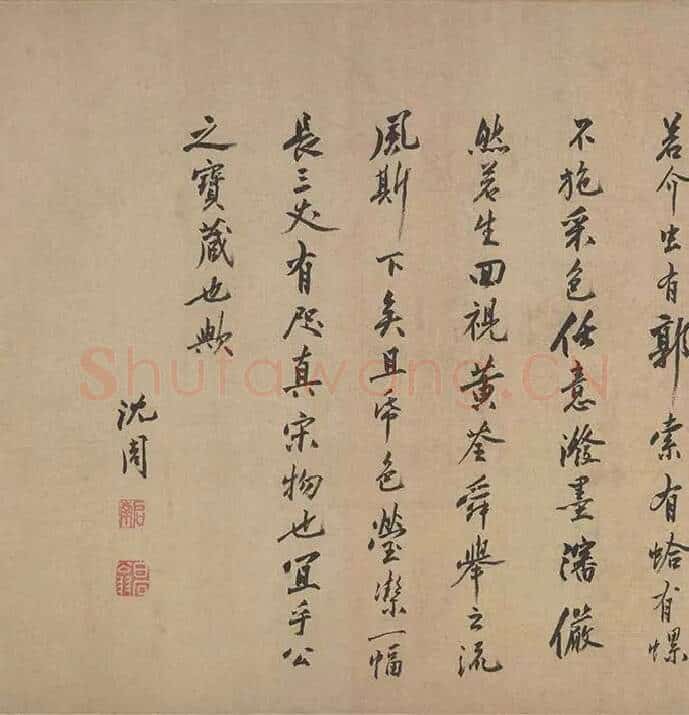 若介虫有郭索有蛤有螺
不施采色任意潑墨瀋儼
然若生回視黄荃舜舉之流
風斯下矣且帋色瑩潔一幅
長三丈有咫真宋物也宜乎公
之寶藏也歟
沈周
啓南
白石翁
Shufawang.CN